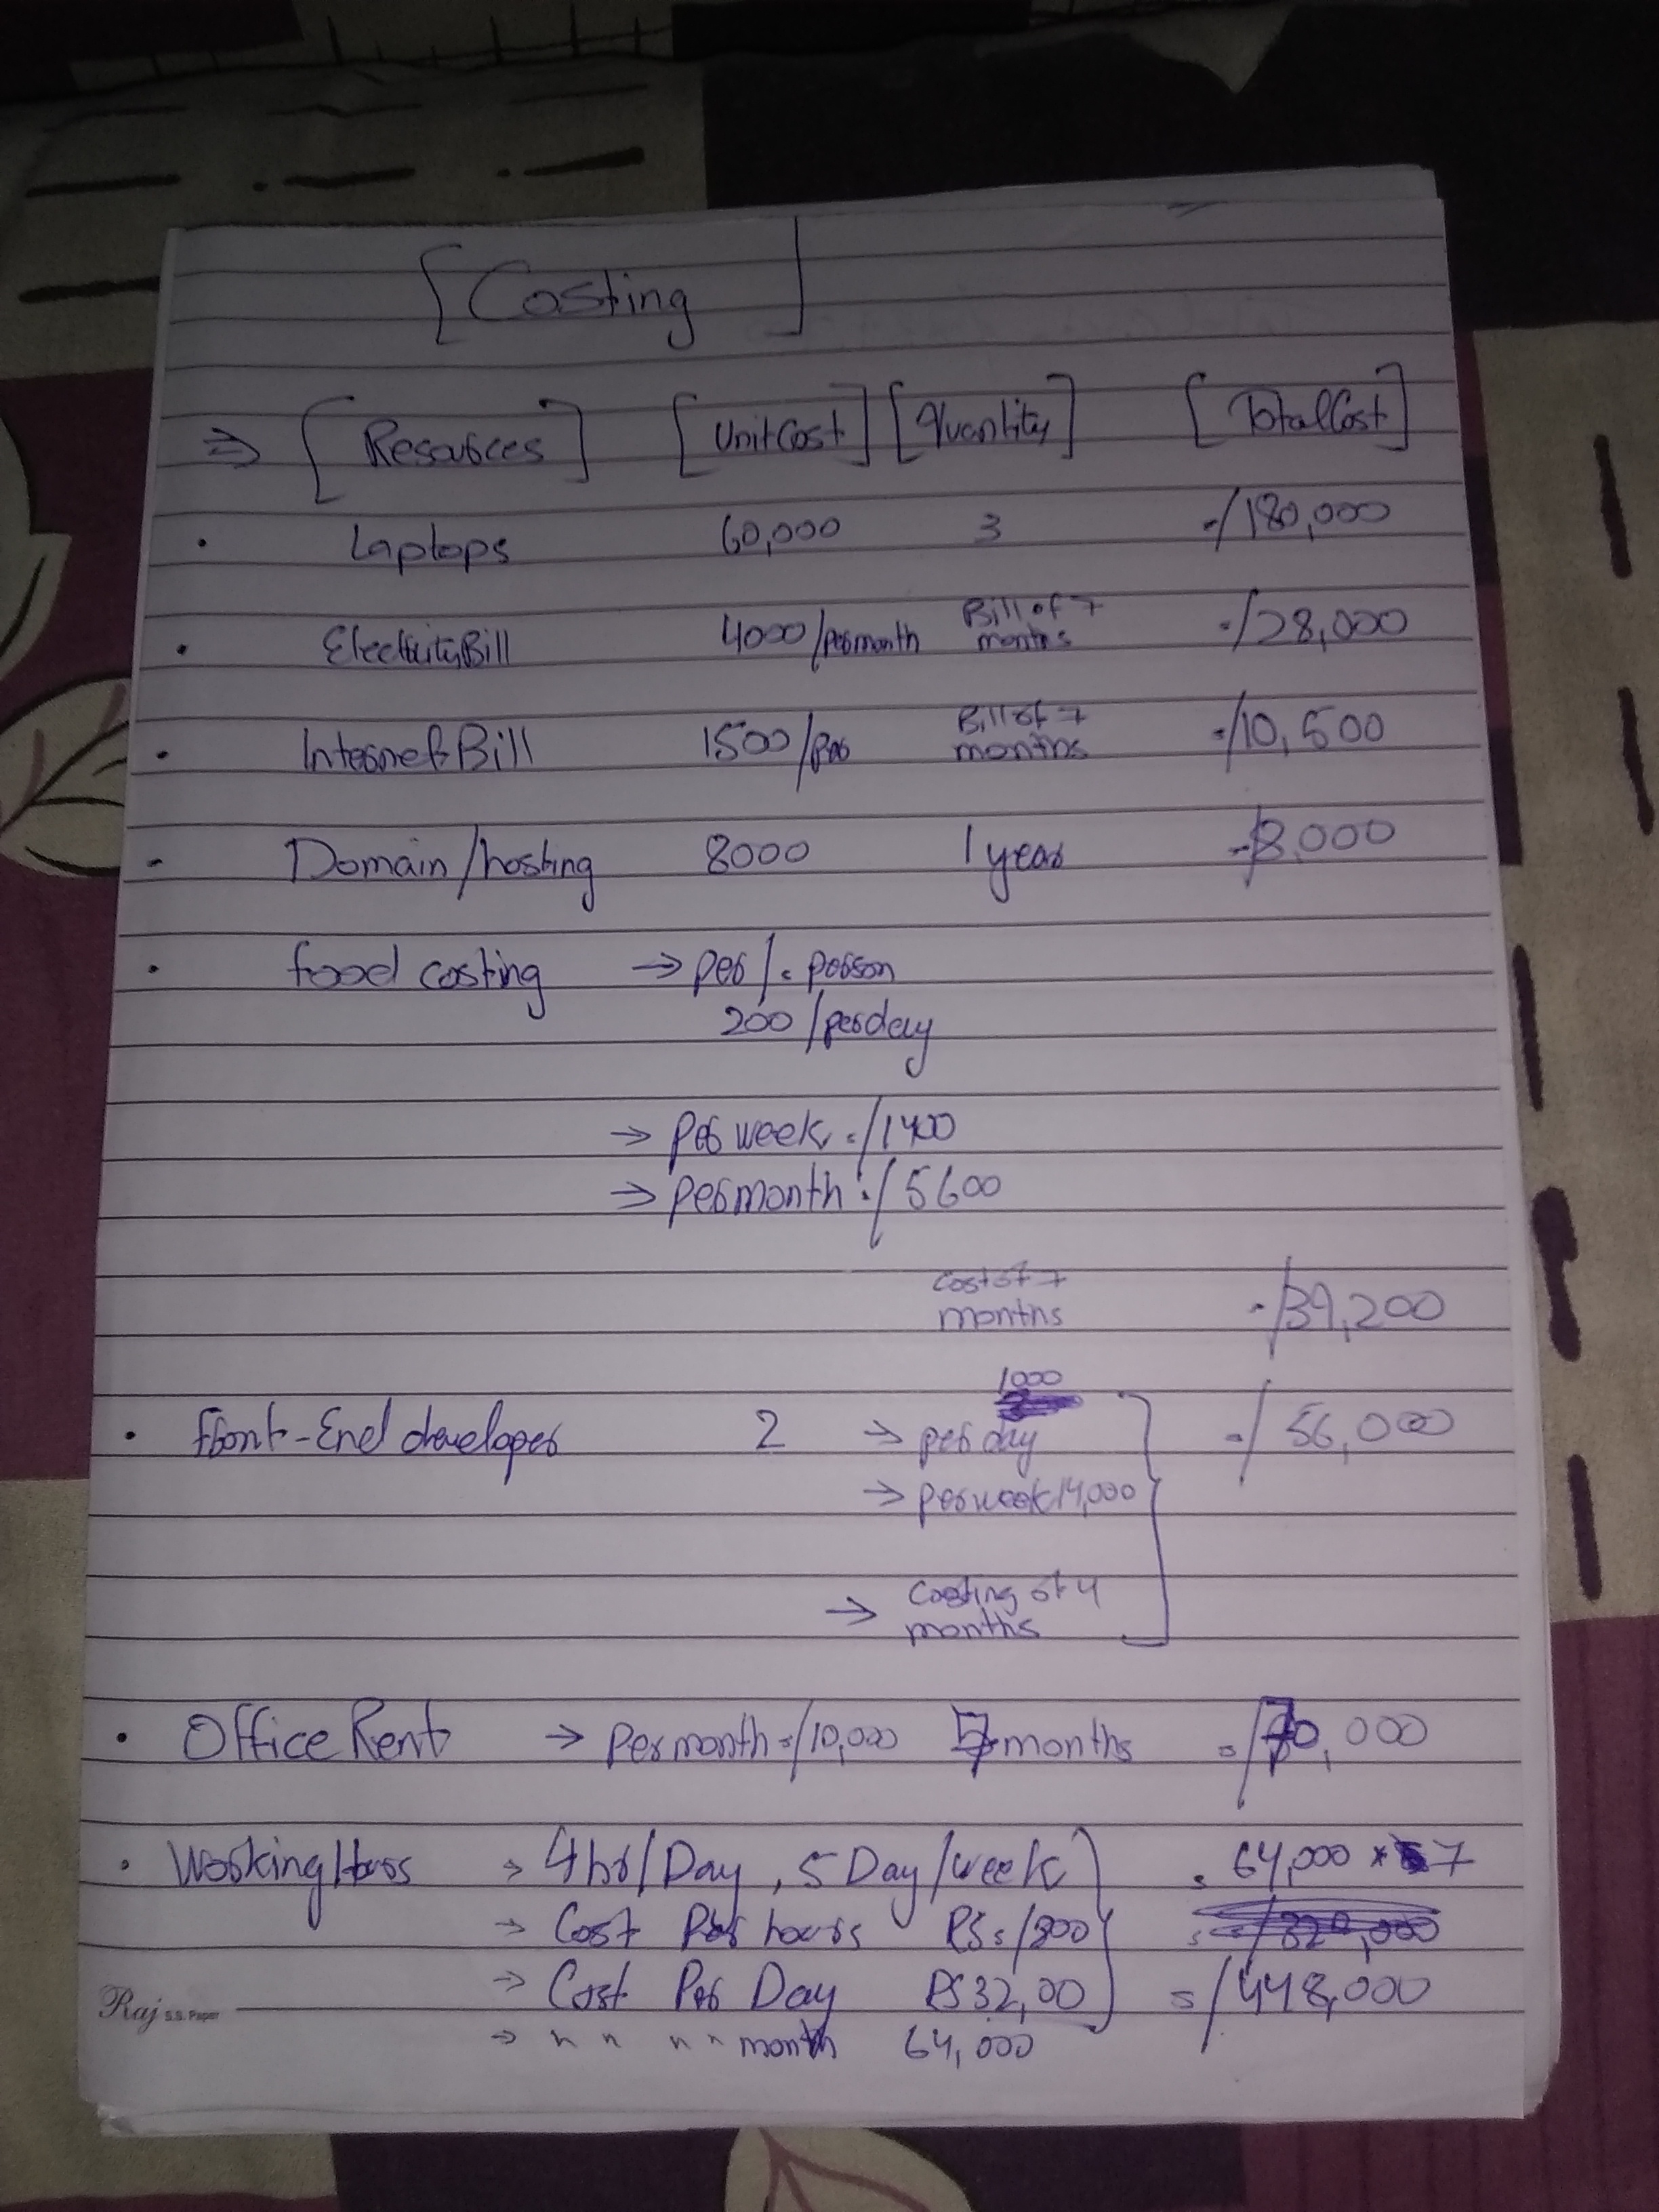 [Costing]
⇒ [Resources] [Unit Cost] [Quantity] [Total Cost]
• Laptops 60,000 3 =/180,000
• Electricity Bill 4000/per month Bill of 7 months =/28,000
• Internet Bill 1500/per Bill of 7 months =/10,500
- Domain/hosting 8000 1 year =/8,000
• food costing → per/. person
200/per day
→ per week =/1400
→ per month =/5600
Cost of 7 months =/39,200
1000
• Front-End developer 2 → per day =/56,000
→ per week 14,000
→ Costing of 4 months
• Office Rent → Per month =/10,000 7 months =/70,000
• Working Hours → 4hr/Day, 5 Day/week = 64,000 * 7
→ Cost Per hours RS=/800
→ Cost Per Day RS 32,00 =/448,000
→ " " " " month 64,000
Raj S.S. Paper